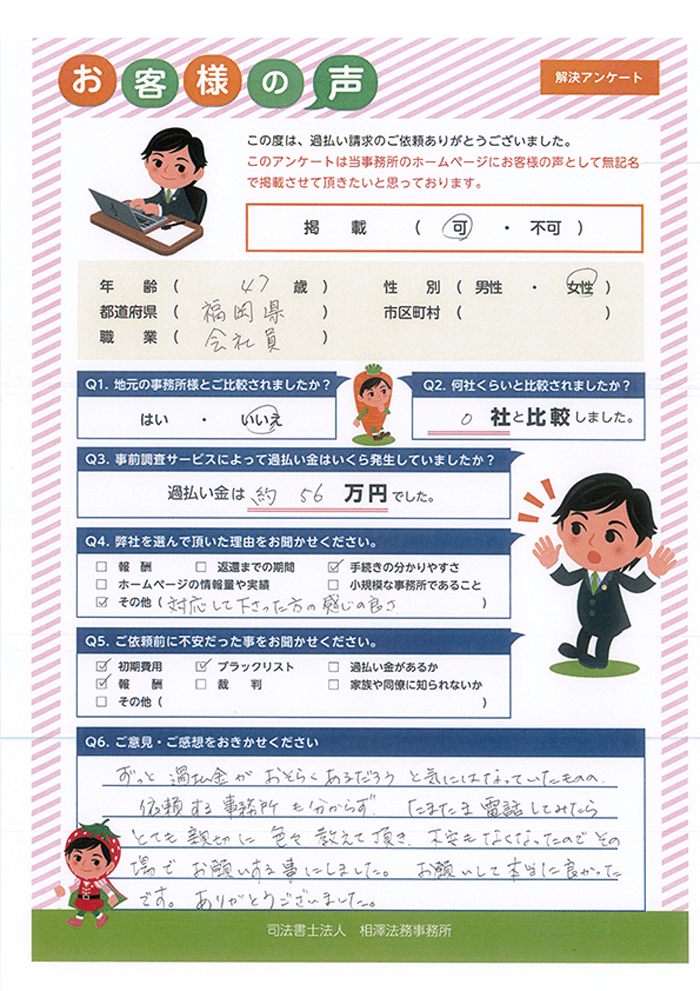 お客様の声
解決アンケート
この度は、過払い請求のご依頼ありがとうございました。
このアンケートは当事務所のホームページにお客様の声として無記名
で掲載させて頂きたいと思っております。
掲　載　（　可　・　不可　）
年　齢（　47　歳　）　性　別（　男性　・　女性　）
都道府県（　福岡県　）　市区町村（　　）
職　業（　会社員　）
Q1. 地元の事務所様とご比較されましたか？
はい　・　いいえ
Q2. 何社くらいと比較されましたか？
0 社と比較しました。
Q3. 事前調査サービスによって過払い金はいくら発生していましたか？
過払い金は 約 56 万円でした。
Q4. 弊社を選んで頂いた理由をお聞かせください。
□ 報　酬　□ 返還までの期間　☑ 手続きの分かりやすさ
□ ホームページの情報量や実績　□ 小規模な事務所であること
☑ その他（対応して下さった方の感じの良さ　）
Q5. ご依頼前に不安だった事をお聞かせください。
☑ 初期費用　☑ ブラックリスト　□ 過払い金があるか
☑ 報　酬　□ 裁　判　□ 家族や同僚に知られないか
□ その他（　　）
Q6. ご意見・ご感想をおきかせください
ずっと過払金がおそらくあるだろうと気にはなっていたものの、
依頼する事務所も分からず、たまたま電話してみたら
とても親切に色々教えて頂き、不安もなくなったのでその
場でお願いする事にしました。お願いして本当に良かった
です。ありがとうございました。
司法書士法人　相澤法務事務所